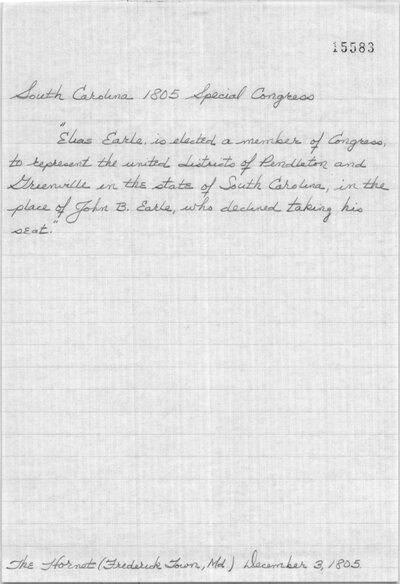 15583
South Carolina 1805 Special Congress
"Elias Earle, is elected a member of Congress,
to represent the united districts of Pendleton and
Greenville in the state of South Carolina, in the
place of John B. Earle, who declined taking his
seat."
The Hornet (Frederick Town, Md.) December 3, 1805.